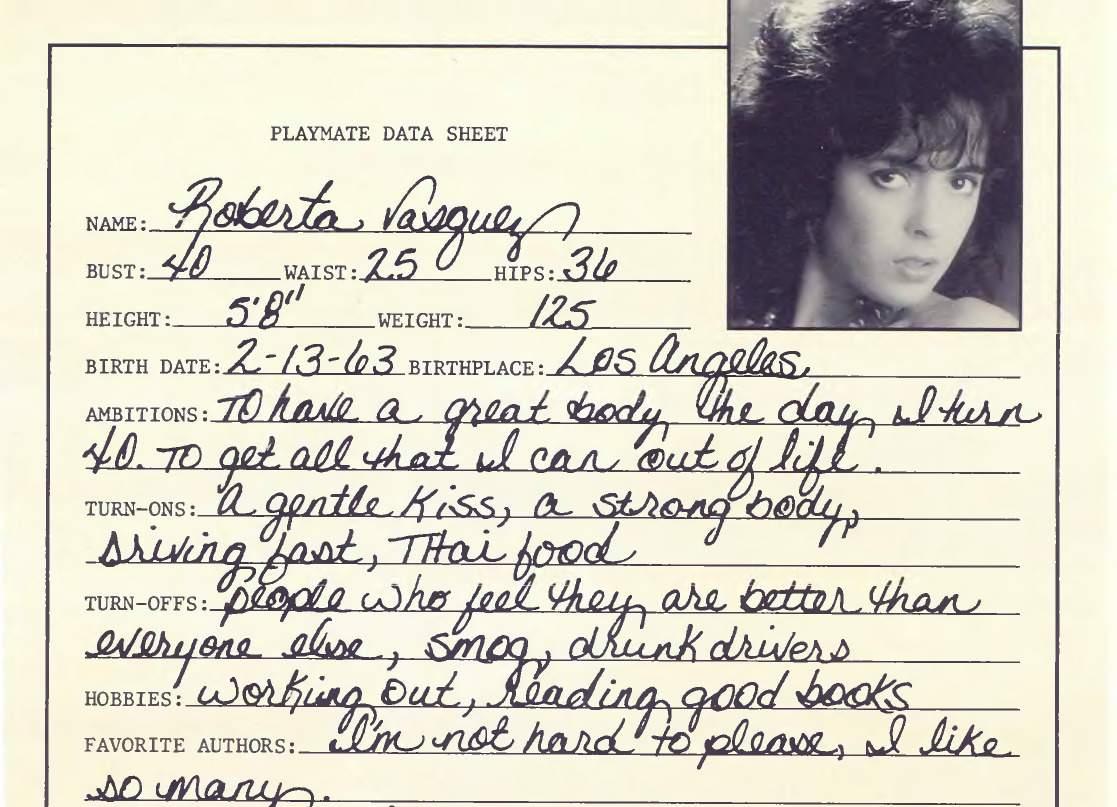 PLAYMATE DATA SHEET
NAME: Roberta Vasquez
BUST: 40 WAIST: 25 HIPS: 36
HEIGHT: 5'8" WEIGHT: 125
BIRTH DATE: 2-13-63 BIRTHPLACE: Los Angeles
AMBITIONS: To have a great body the day I turn
40. To get all that I can out of life.
TURN-ONS: A gentle kiss, a strong body,
driving fast, THai food
TURN-OFFS: people who feel they are better than
everyone else, smog, drunk drivers
HOBBIES: working out, reading good books
FAVORITE AUTHORS: I'm not hard to please, I like
so many.